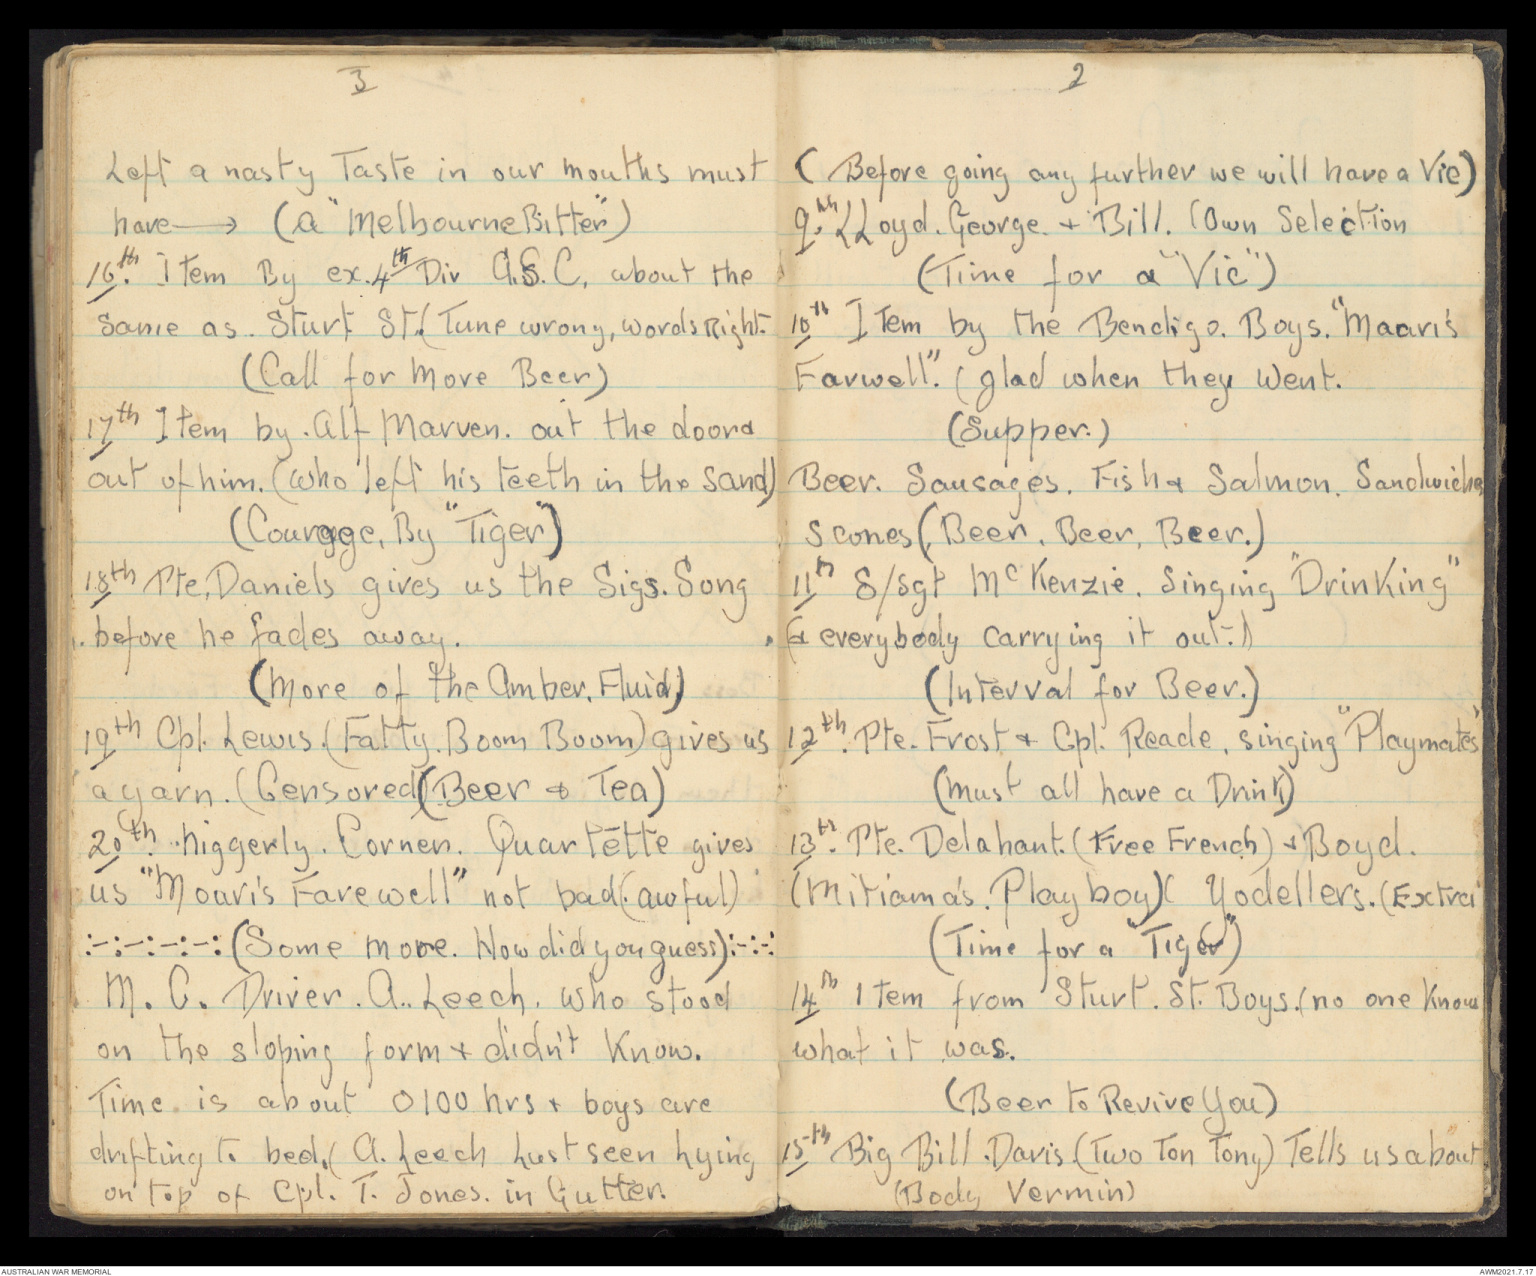 3
Left a nasty Taste in our mouths must
have → (a "Melbourne Bitter")
16th. Item By ex. 4th Div A.S.C, about the
same as. Sturt St. (Tune wrong, words Right.
(Call for More Beer)
17th Item by. Alf Marven. out the doord
out of him. (who left his teeth in the sand)
(Courage, By "Tiger")
18th Pte, Daniels gives us the Sigs. Song
before he fades away.
(More of the Amber. Fluid)
19th Cpl. Lewis. (Fatty. Boom Boom) gives us
a yarn. (Censored) (Beer & Tea)
20th. Niggerly. Corner. Quartette gives
us "Moari's Farewell" not bad (awful)
:-:-:-:-: (Some more. How did you guess) :-:-:
M. C. Driver. A.. Leech. who stood
on the sloping form + didn't Know.
Time is about 0100 hrs + boys are
drifting to bed. (A. Leech Lust seen Lying
on top of Cpl. T. Jones. in Gutter.
2
( Before going any further we will have a Vic)
9th. LLoyd. George. + Bill. (Own Selection
(Time for a "Vic")
10th Item by the Bendigo. Boys. "Maari's
Farwell". (glad when they Went.
(Supper.)
Beer. Sausages. Fish & Salmon. Sandwiches
Scones (, Beer, Beer, Beer.)
11th S/sgt McKenzie. Singing "Drinking"
(& everybody carrying it out.)
(Interval for Beer.)
12th. Pte. Frost & Cpl. Reade, singing "Playmates"
(Must all have a Drink)
13th. Pte. Delahant. (Free French) + Boyd.
(Mitiama's. Playboy) ( Yodellers. (Extra
(Time for a "Tiger")
14th Item from Sturt. St. Boys. (no one Know
what it was.
(Beer to Revive You)
15th Big Bill. Davis. (Two Ton Tony) Tells us about
(Body Vermin)
AUSTRALIAN WAR MEMORIAL
AWM2021.7.17